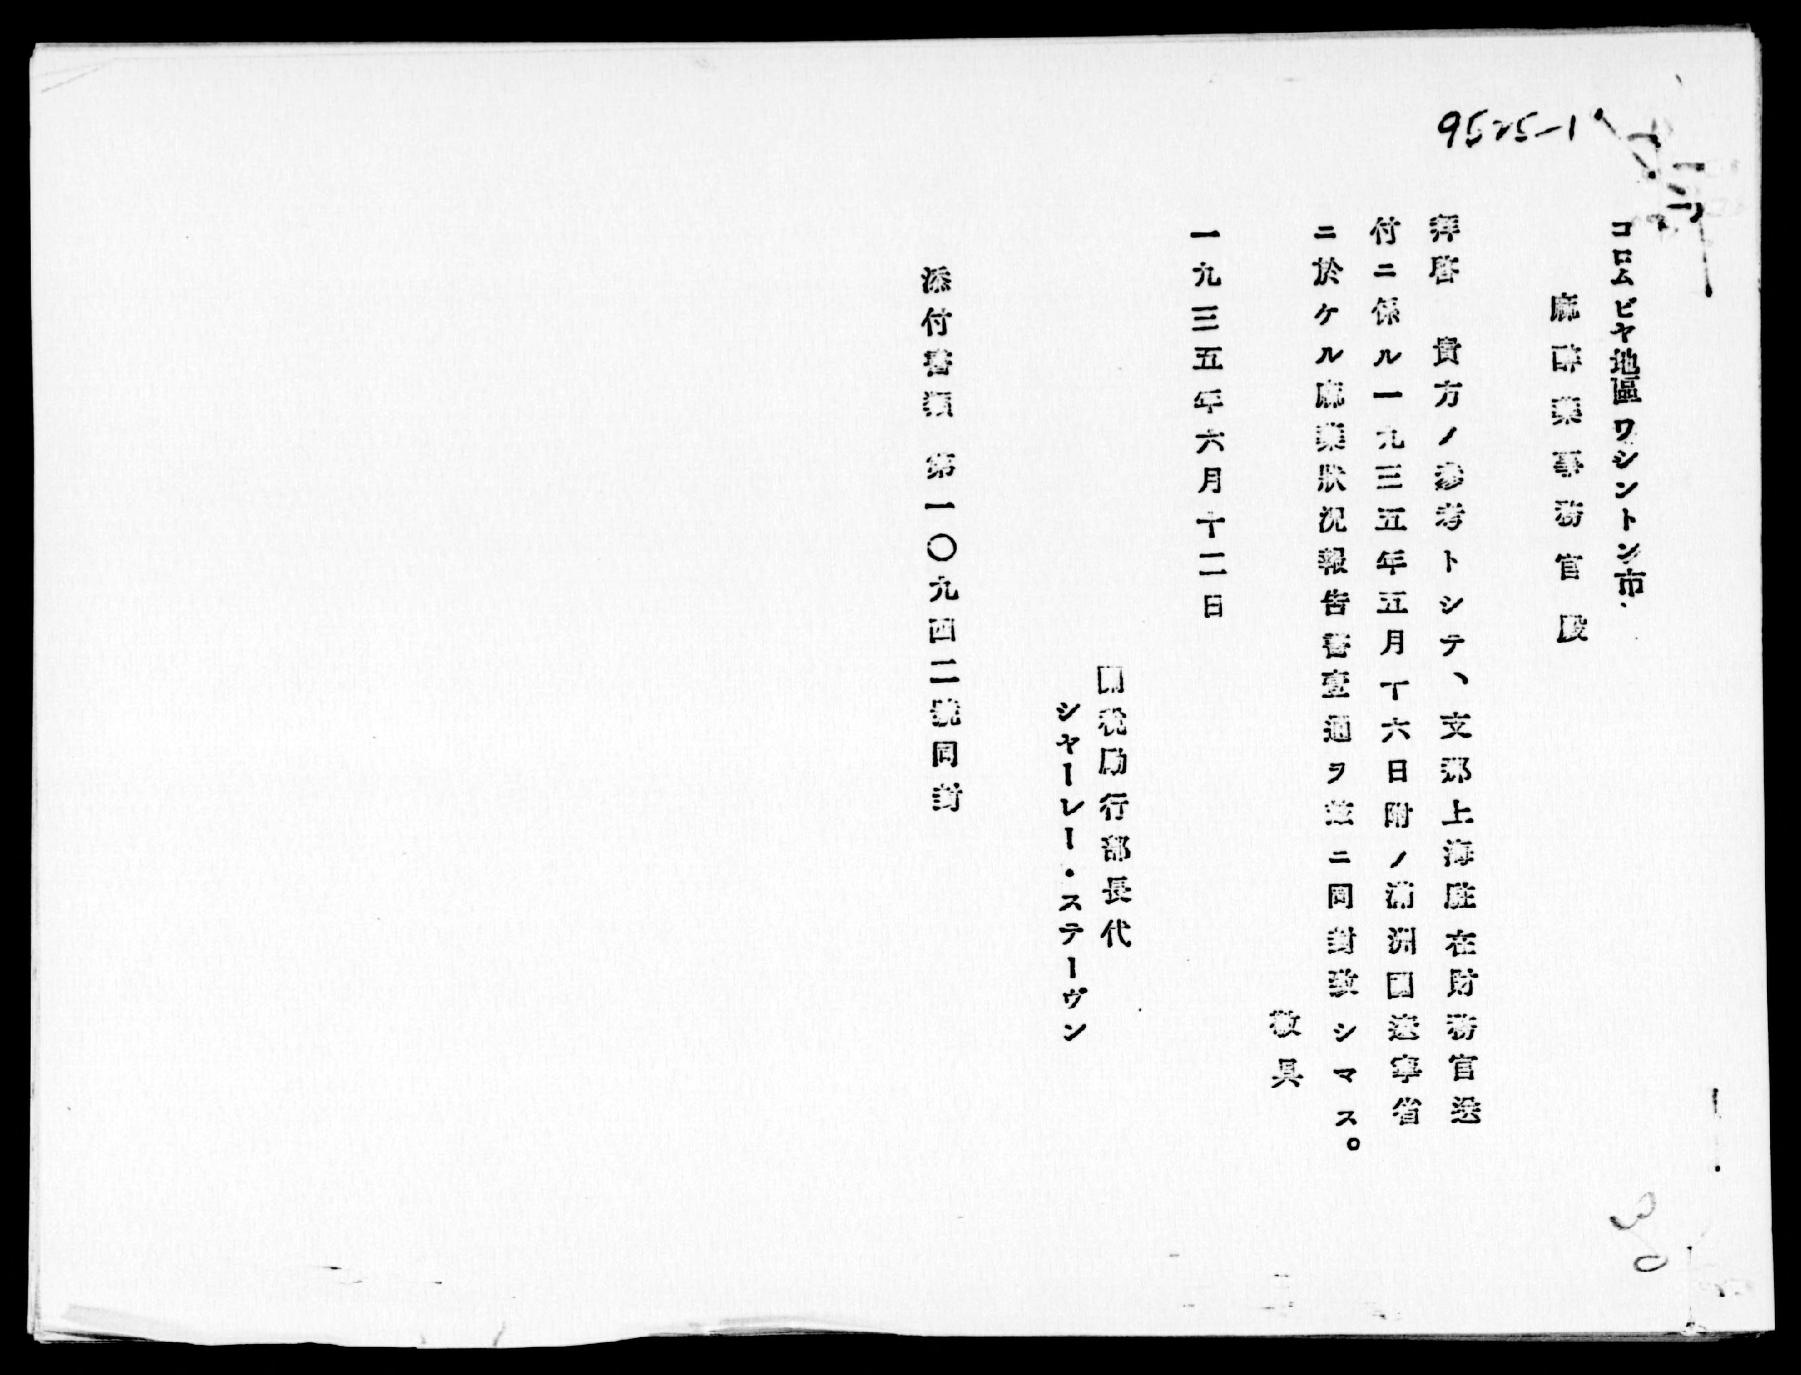 9525-1
コロムビヤ地區ワシントン市
麻醉藥事務官殿
拜啓 貴方ノ參考トシテ、支那上海駐在財務官送
付ニ係ル一九三五年五月十六日附ノ滿洲國遼寧省
ニ於ケル麻藥狀況報告書壹通ヲ茲ニ同封致シマス。
敬具
一九三五年六月十二日
關稅勵行部長代
シャーレー・ステーヴン
添付書類 第一〇九四二號同封